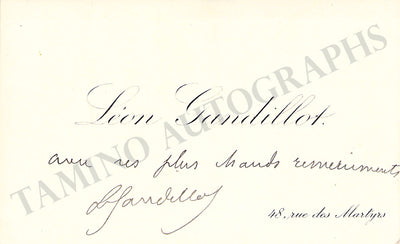 Léon Gandillot.
avec ses plus chauds remerciements
LGandillot
48, rue des Martyrs
TAMINO AUTOGRAPHS